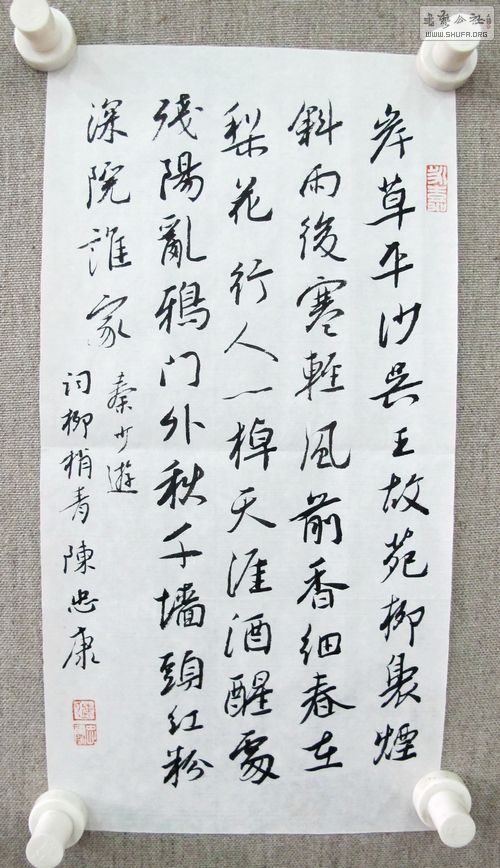 岸草平沙吳王故苑柳裊煙
斜雨後寒輕风前香细春在
梨花行人一棹天涯酒醒處
残陽亂鴉门外秋千墙頭红粉
深院誰家
秦少遊
词柳梢青 陳忠康
書藝公社
WWW.SHUFA.ORG